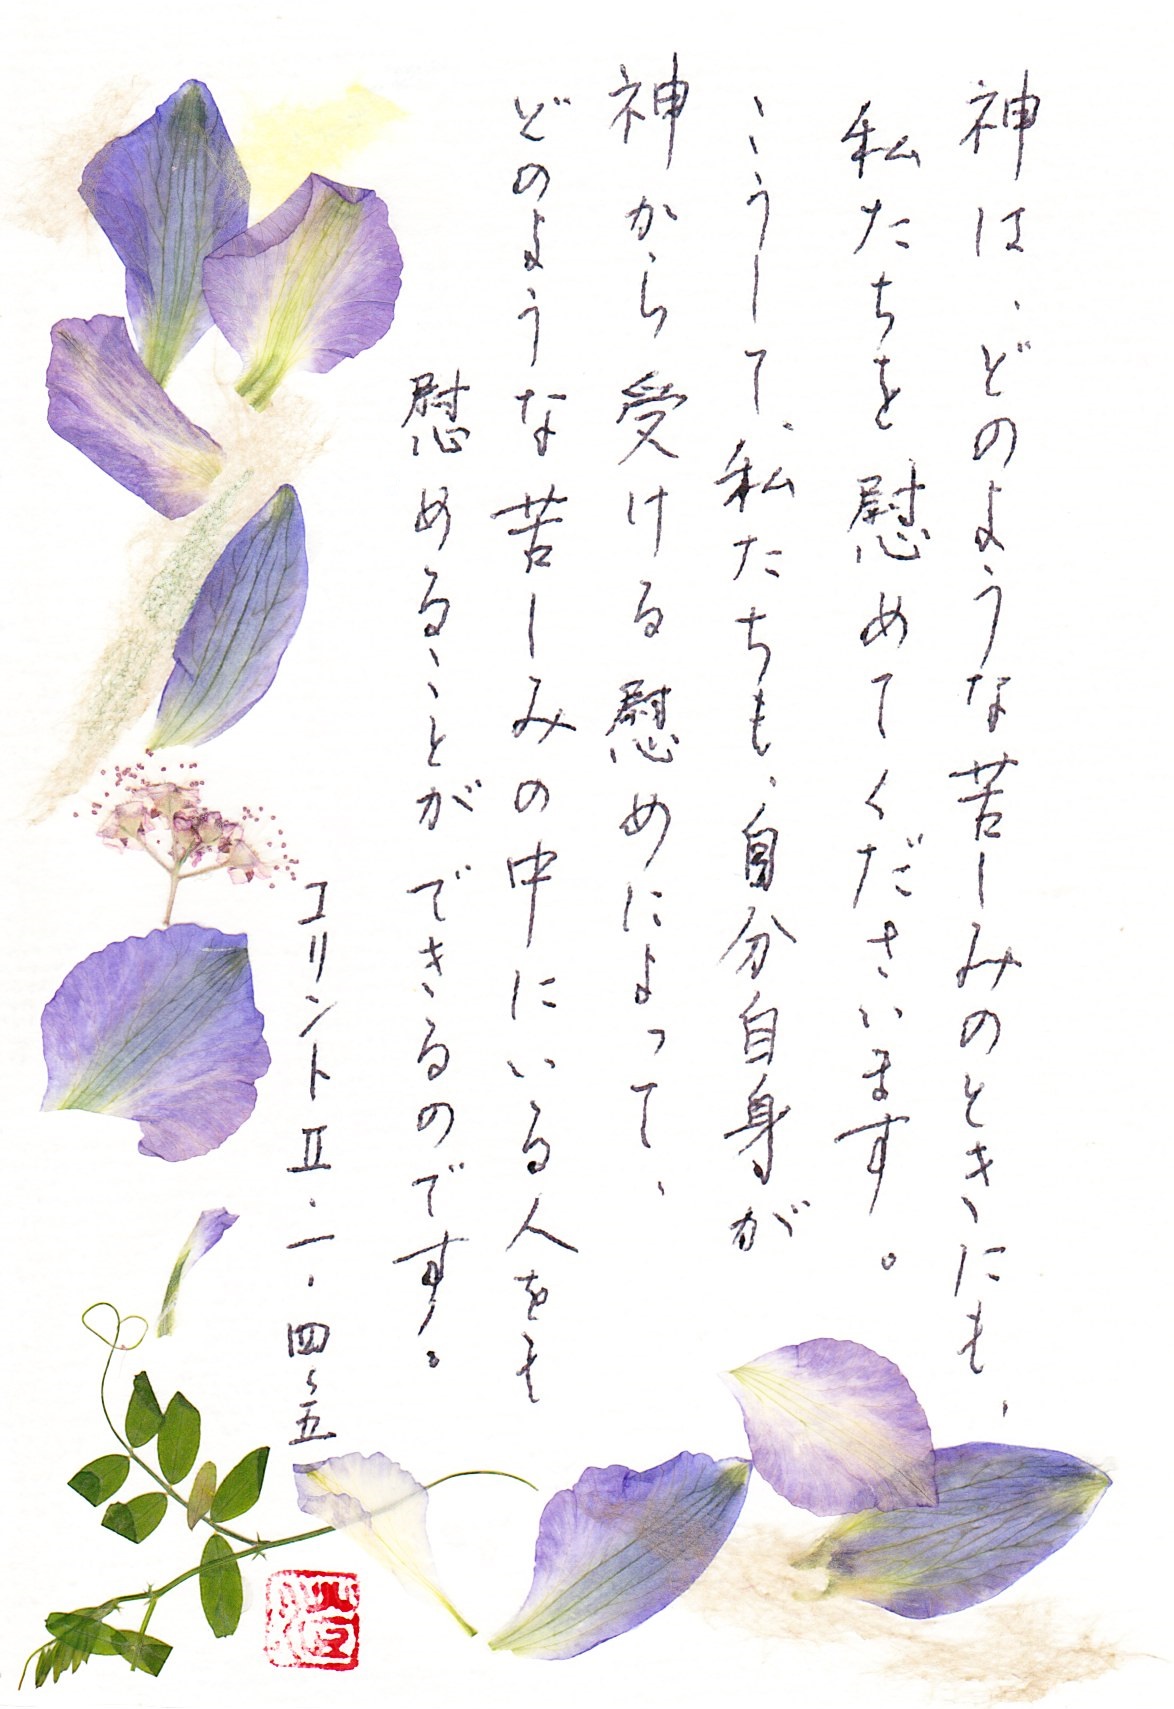 神は、どのような苦しみのときにも、
私たちを慰めてくださいます。
こうして、私たちも、自分自身が
神から受ける慰めによって、
どのような苦しみの中にいる人をも
慰めることができるのです。
コリントⅡ・一・四、五